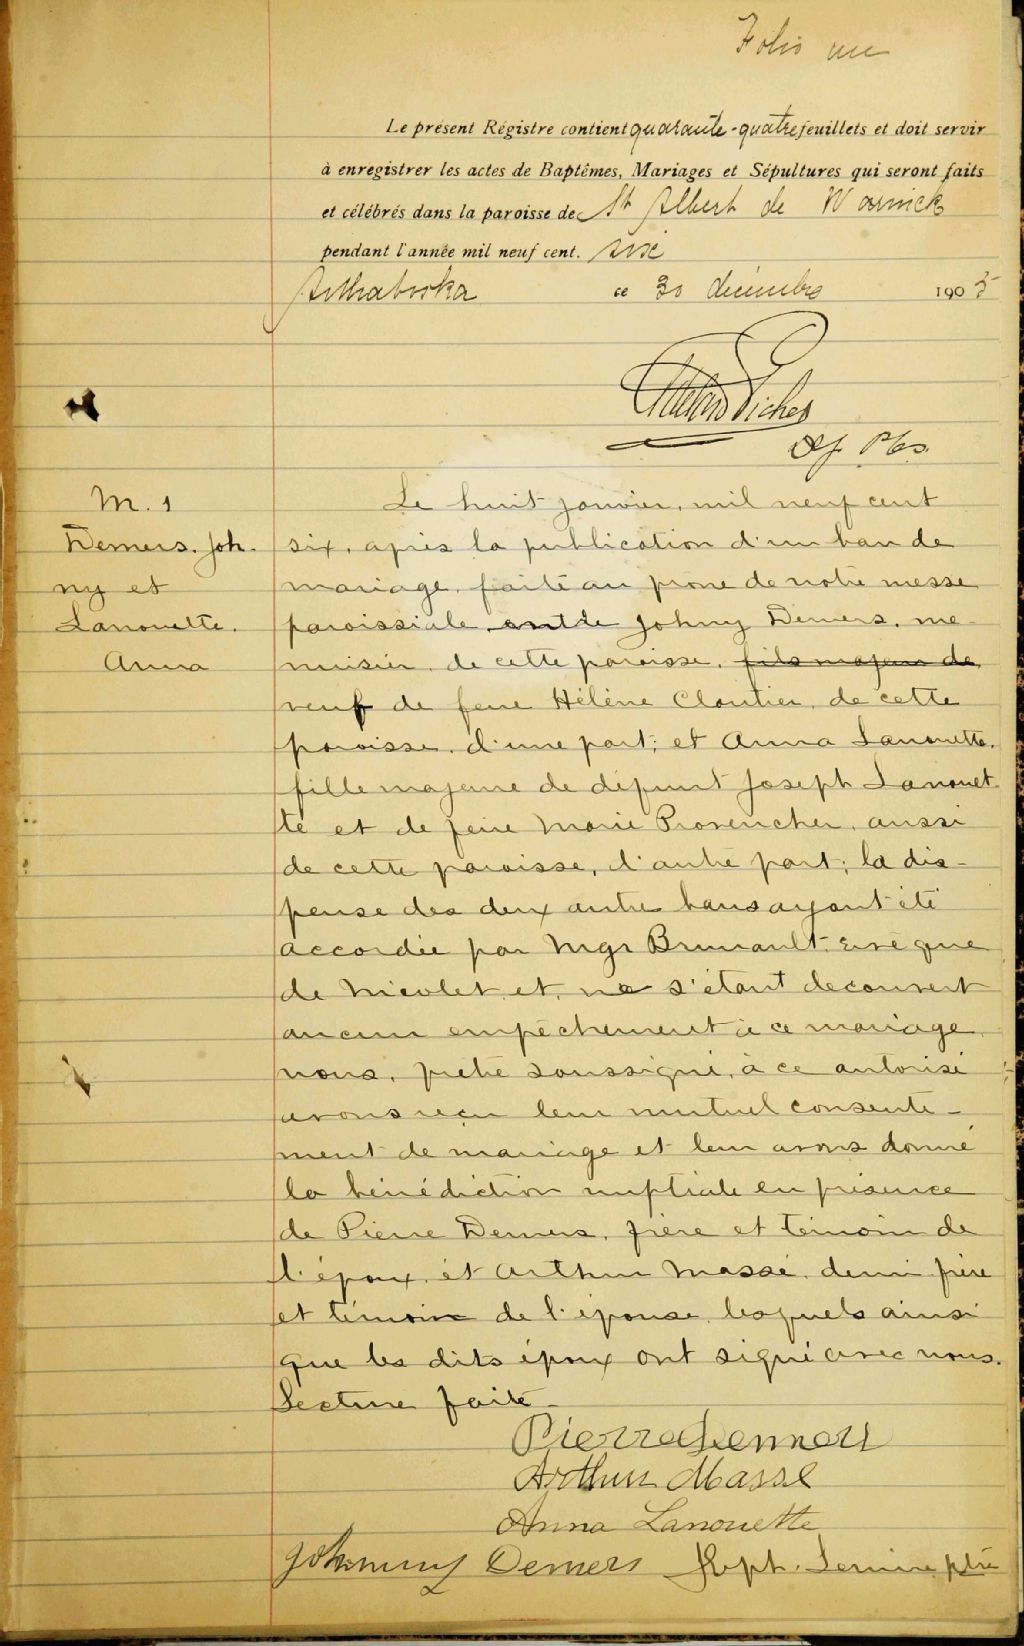 Folio un
Le présent Régistre contient quarante-quatre feuillets et doit servir
à enregistrer les actes de Baptêmes, Mariages et Sépultures qui seront faits
et célébrés dans la paroisse de St Albert de Warwick
pendant l'année mil neuf cent. six
Arthabaska ce 30 décembre 1905
M. 1
Demers. Joh-
ny et
Lanouette.
Anna
Le huit janvier, mil neuf cent
six, après la publication d'un ban de
mariage, faite au prone de notre messe
paroissiale entre Johny Demers, me-
nuisier, de cette paroisse, fils majeur de
veuf de feue Hélène Cloutier, de cette
paroisse, d'une part; et Anna Lanouette,
fille majeure de défunt Joseph Lanouet-
te et de feue Marie Provencher, aussi
de cette paroisse, d'autre part; la dis-
pense des deux autre bans ayant été
accordée par Mgr Brunault évêque
de Nicolet et ne s'étant decouvert
aucun empêchement à ce mariage
nous, prêtre soussigné, à ce autorisé
avons reçu leur mutuel consente-
ment de mariage et leur avons donné
la bénédiction nuptiale en présence
de Pierre Demers, frère et témoin de
l'époux, et Arthur Massé, demi-frère
et témoin de l'épouse, lesquels ainsi
que les dits époux ont signé avec nous.
Lecture faite.
Pierre Demers
Arthur Masse
Anna Lanouette
Johnny Demers